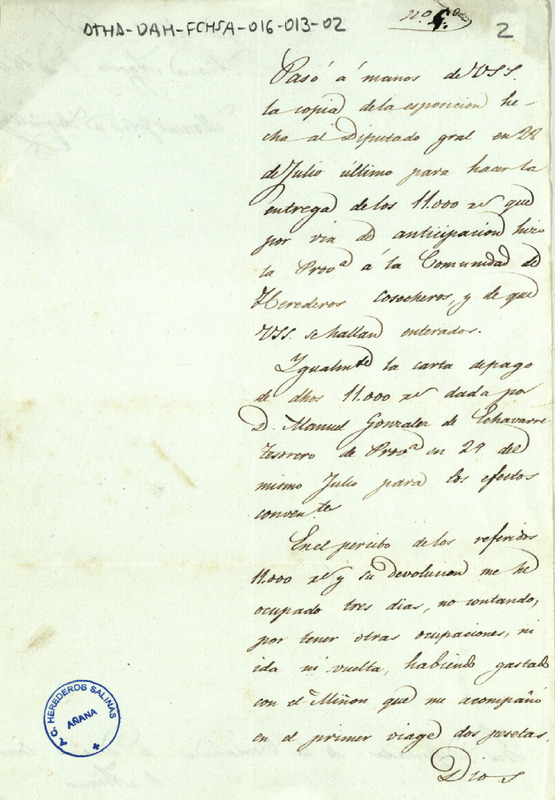 ATHA-DAH-FCHSA-016-013-02
2
Pasó á manos de VSS.
la copia de la esposicion he-
cha al Diputado gral en 22
de Julio último para hacer la
entrega de los 11.000 rs que
por via de anticipacion hizo
la Prov.ª á la Comunidad de
Herederos cosecheros, y de que
VSS. se hallan enterados.
Igualmte la carta de pago
de dhos 11.000 rs dada por
D. Manuel Gonzalez de Echavarre
tesorero de Prov.ª en 24 del
mismo Julio para los efectos
conventes
En el percibo de los referidos
11.000 rs y su devolucion me he
ocupado tres dias, no contando,
por tener otras ocupaciones, ni
ida ni vuelta, habiendo gastado
con el Miñon que me acompañó
en el primer viage dos pesetas.
Dios
C. HEREDEROS SALINAS
AÑANA